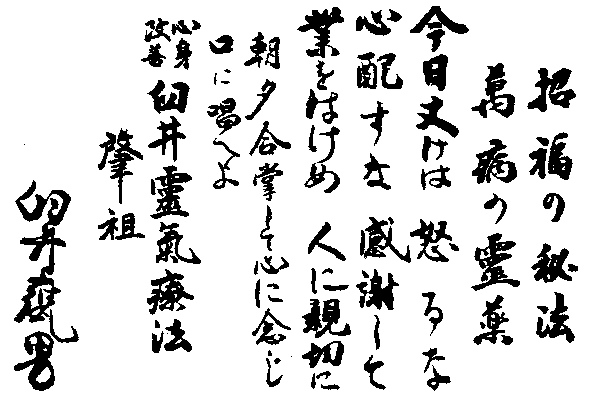 招福の秘法
萬病の靈薬
今日丈けは 怒るな
心配すな 感謝して
業をはけめ 人に親切に
朝夕合掌して心に念じ
口に唱へよ
心身
改善 臼井靈氣療法
肇祖
臼井甕男